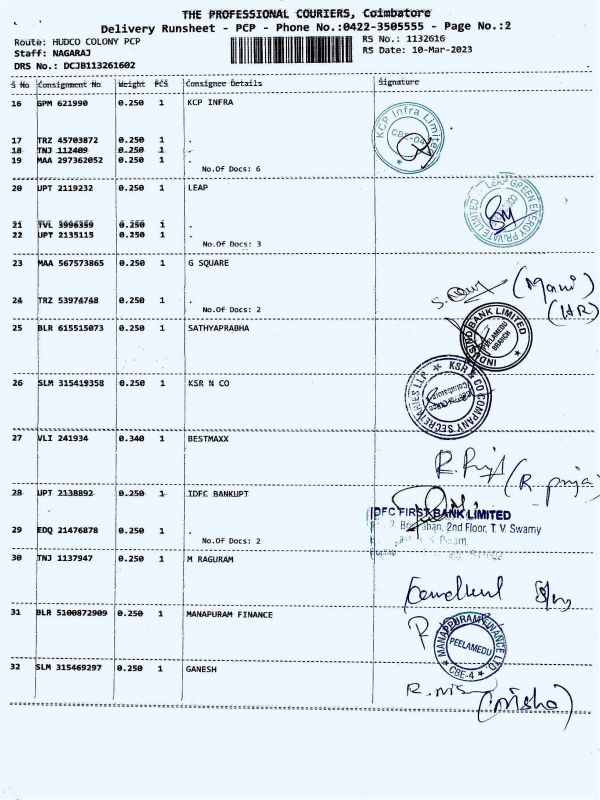 THE PROFESSIONAL COURIERS, Coimbatore
Delivery Runsheet - PCP - Phone No.:0422-3505555 - Page No.:2
Route: HUDCO COLONY PCP
RS No.: 1132616
Staff: NAGARAJ
RS Date: 10-Mar-2023
DRS No.: DCJB113261602
S No Consignment No. Weight PCS Consignee Details Signature
16 GPM 621990 0.250 1 KCP INFRA
KCP Infra Limited
17 TRZ 45703872 0.250 1 .
18 TNJ 112409 0.250 1 .
19 MAA 297362052 0.250 1 .
No.Of Docs: 6
20 UPT 2119232 0.250 1 LEAP
LEAP GREEN ENERGY PRIVATE LIMITED
21 TVL 3996359 0.250 1 .
22 UPT 2135115 0.250 1 .
No.Of Docs: 3
23 MAA 567573865 0.250 1 G SQUARE
(Mani)
(HR)
24 TRZ 53974748 0.250 1 .
No.Of Docs: 2
25 BLR 615515073 0.250 1 SATHYAPRABHA
INDUSIND BANK LIMITED
PEELAMEDU BRANCH
26 SLM 315419358 0.250 1 KSR N CO
KSR & CO COMPANY SECRETARIES LLP
27 VLI 241934 0.340 1 BESTMAXX
(R prija)
28 UPT 2138892 0.250 1 IDFC BANKUPT
IDFC FIRST BANK LIMITED
2nd Floor, T. V. Swamy
29 EDQ 21476878 0.250 1 .
No.Of Docs: 2
30 TNJ 1137947 0.250 1 M RAGURAM
31 BLR 5100872909 0.250 1 MANAPURAM FINANCE
PEELAMEDU
CBE-4
32 SLM 315469297 0.250 1 GANESH
(nisha)